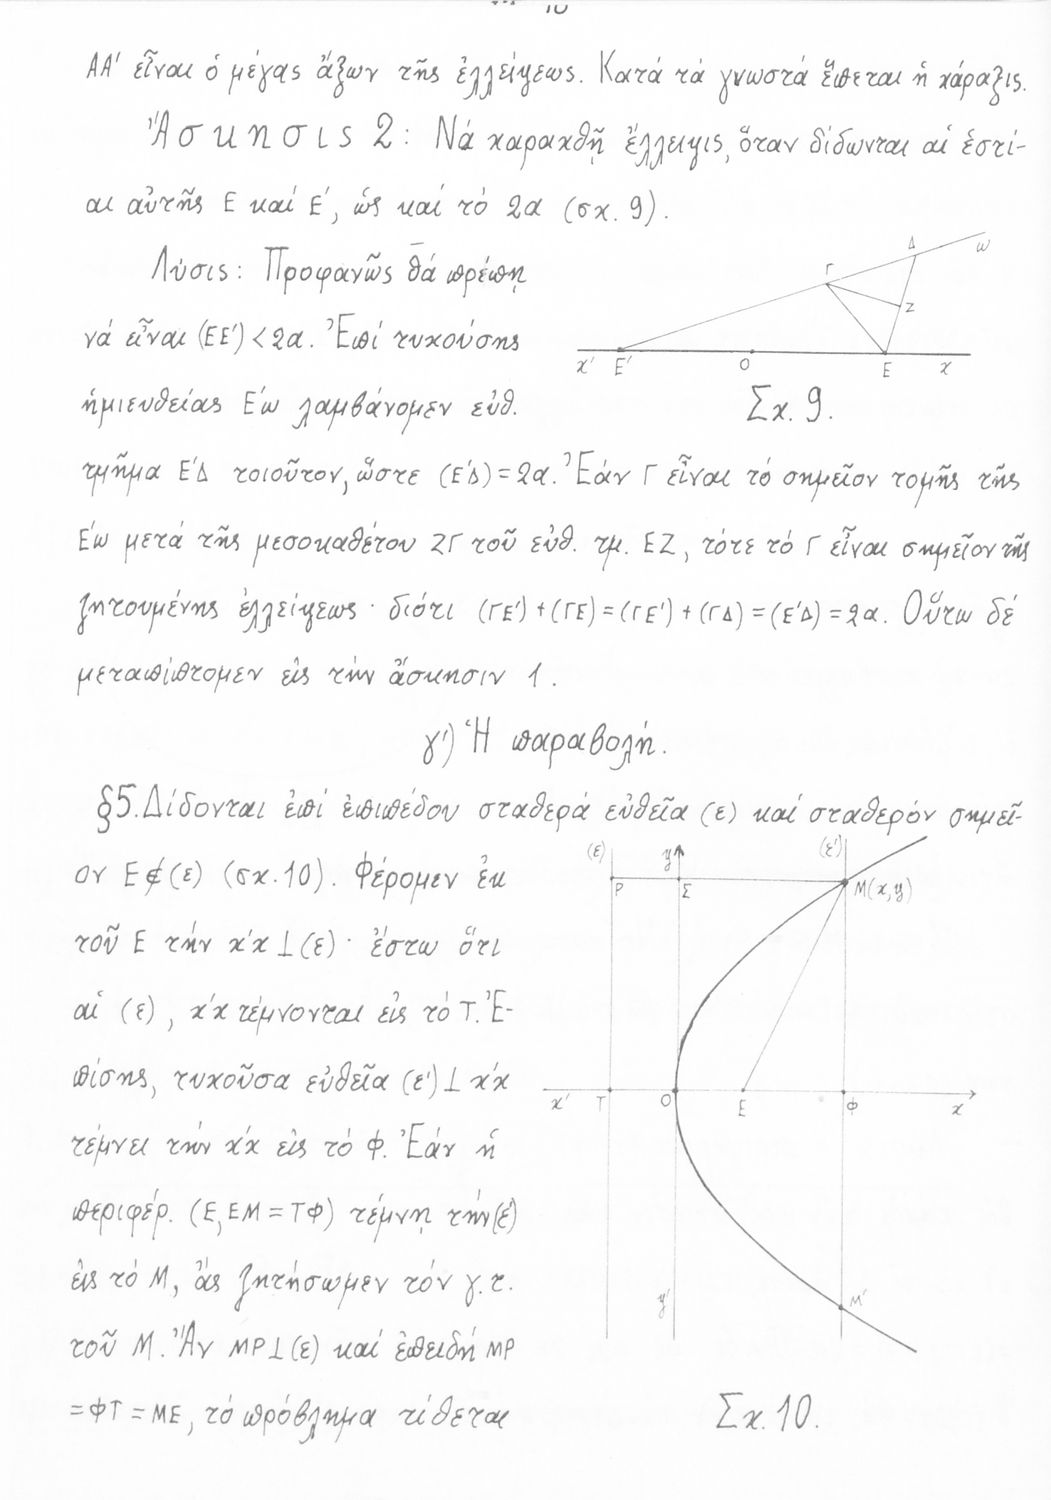 ΑΑ' εἶναι ὁ μέγας ἄξων τῆς ἐλλείψεως. Κατά τά γνωστά ἕπεται ἡ χάραξις.
Ἄσκησις 2: Νά χαραχθῇ ἔλλειψις, ὅταν δίδωνται αἱ ἑστί-
αι αὐτῆς Ε καί Ε', ὡς καί τό 2α (σχ. 9).
Λύσις: Προφανῶς θά πρέπῃ
νά εἶναι (ΕΕ') < 2α. Ἐπί τυχούσης
ἡμιευθείας Ε'ω λαμβάνομεν εὐθ.
Δ
ω
Γ
Ζ
x'
Ε'
Ο
Ε
x
Σχ. 9.
τμῆμα Ε'Δ τοιοῦτον, ὥστε (Ε'Δ) = 2α. Ἐάν Γ εἶναι τό σημεῖον τομῆς τῆς
Ε'ω μετά τῆς μεσοκαθέτου ΖΓ τοῦ εὐθ. τμ. ΕΖ, τότε τό Γ εἶναι σημεῖον τῆς
ζητουμένης ἐλλείψεως· διότι (ΓΕ') + (ΓΕ) = (ΓΕ') + (ΓΔ) = (Ε'Δ) = 2α. Οὕτω δέ
μεταπίπτομεν εἰς τήν ἄσκησιν 1.
γ') Ἡ παραβολή.
§5. Δίδονται ἐπί ἐπιπέδου σταθερά εὐθεῖα (ε) καί σταθερόν σημεῖ-
ον Ε∉(ε) (σχ. 10). Φέρομεν ἐκ
τοῦ Ε τήν x'x ⊥ (ε)· ἔστω ὅτι
αἱ (ε), x'x τέμνονται εἰς τό Τ. Ἐ-
πίσης, τυχοῦσα εὐθεῖα (ε') ⊥ x'x
τέμνει τήν x'x εἰς τό Φ. Ἐάν ἡ
περιφέρ. (Ε, ΕΜ = ΤΦ) τέμνῃ τήν (ε')
εἰς τό Μ, ἄς ζητήσωμεν τόν γ.τ.
τοῦ Μ. Ἄν ΜΡ ⊥ (ε) καί ἐπειδή ΜΡ
= ΦΤ = ΜΕ, τό πρόβλημα τίθεται
(ε)
y
(ε')
Ρ
Σ
Μ(x,y)
x'
Τ
Ο
Ε
Φ
x
y'
Μ'
Σχ. 10.